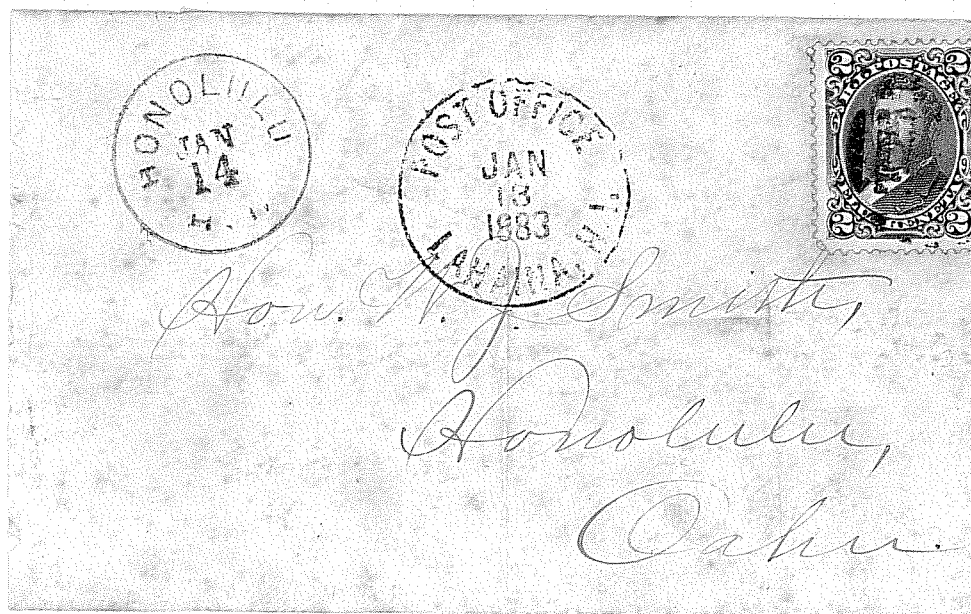 HONOLULU
JAN
14
H. I.
POST OFFICE
JAN
13
1883
LAHAINA, H.I.
2 2
2 2
Hon. W. J. Smith,
Honolulu,
Oahu.